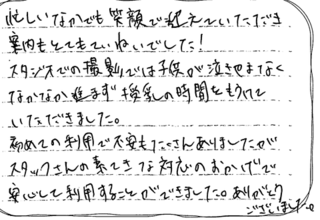 忙しいなかでも笑顔で迎えていただき
案内もとてもていねいでした！
スタジオでの撮影では子供が泣きやまなく
なかなか進まず授乳の時間をもうけて
いただきました。
初めての利用で不安もたくさんありましたが
スタッフさんの素てきな対応のおかげで
安心して利用することができました。ありがとう
ございました。